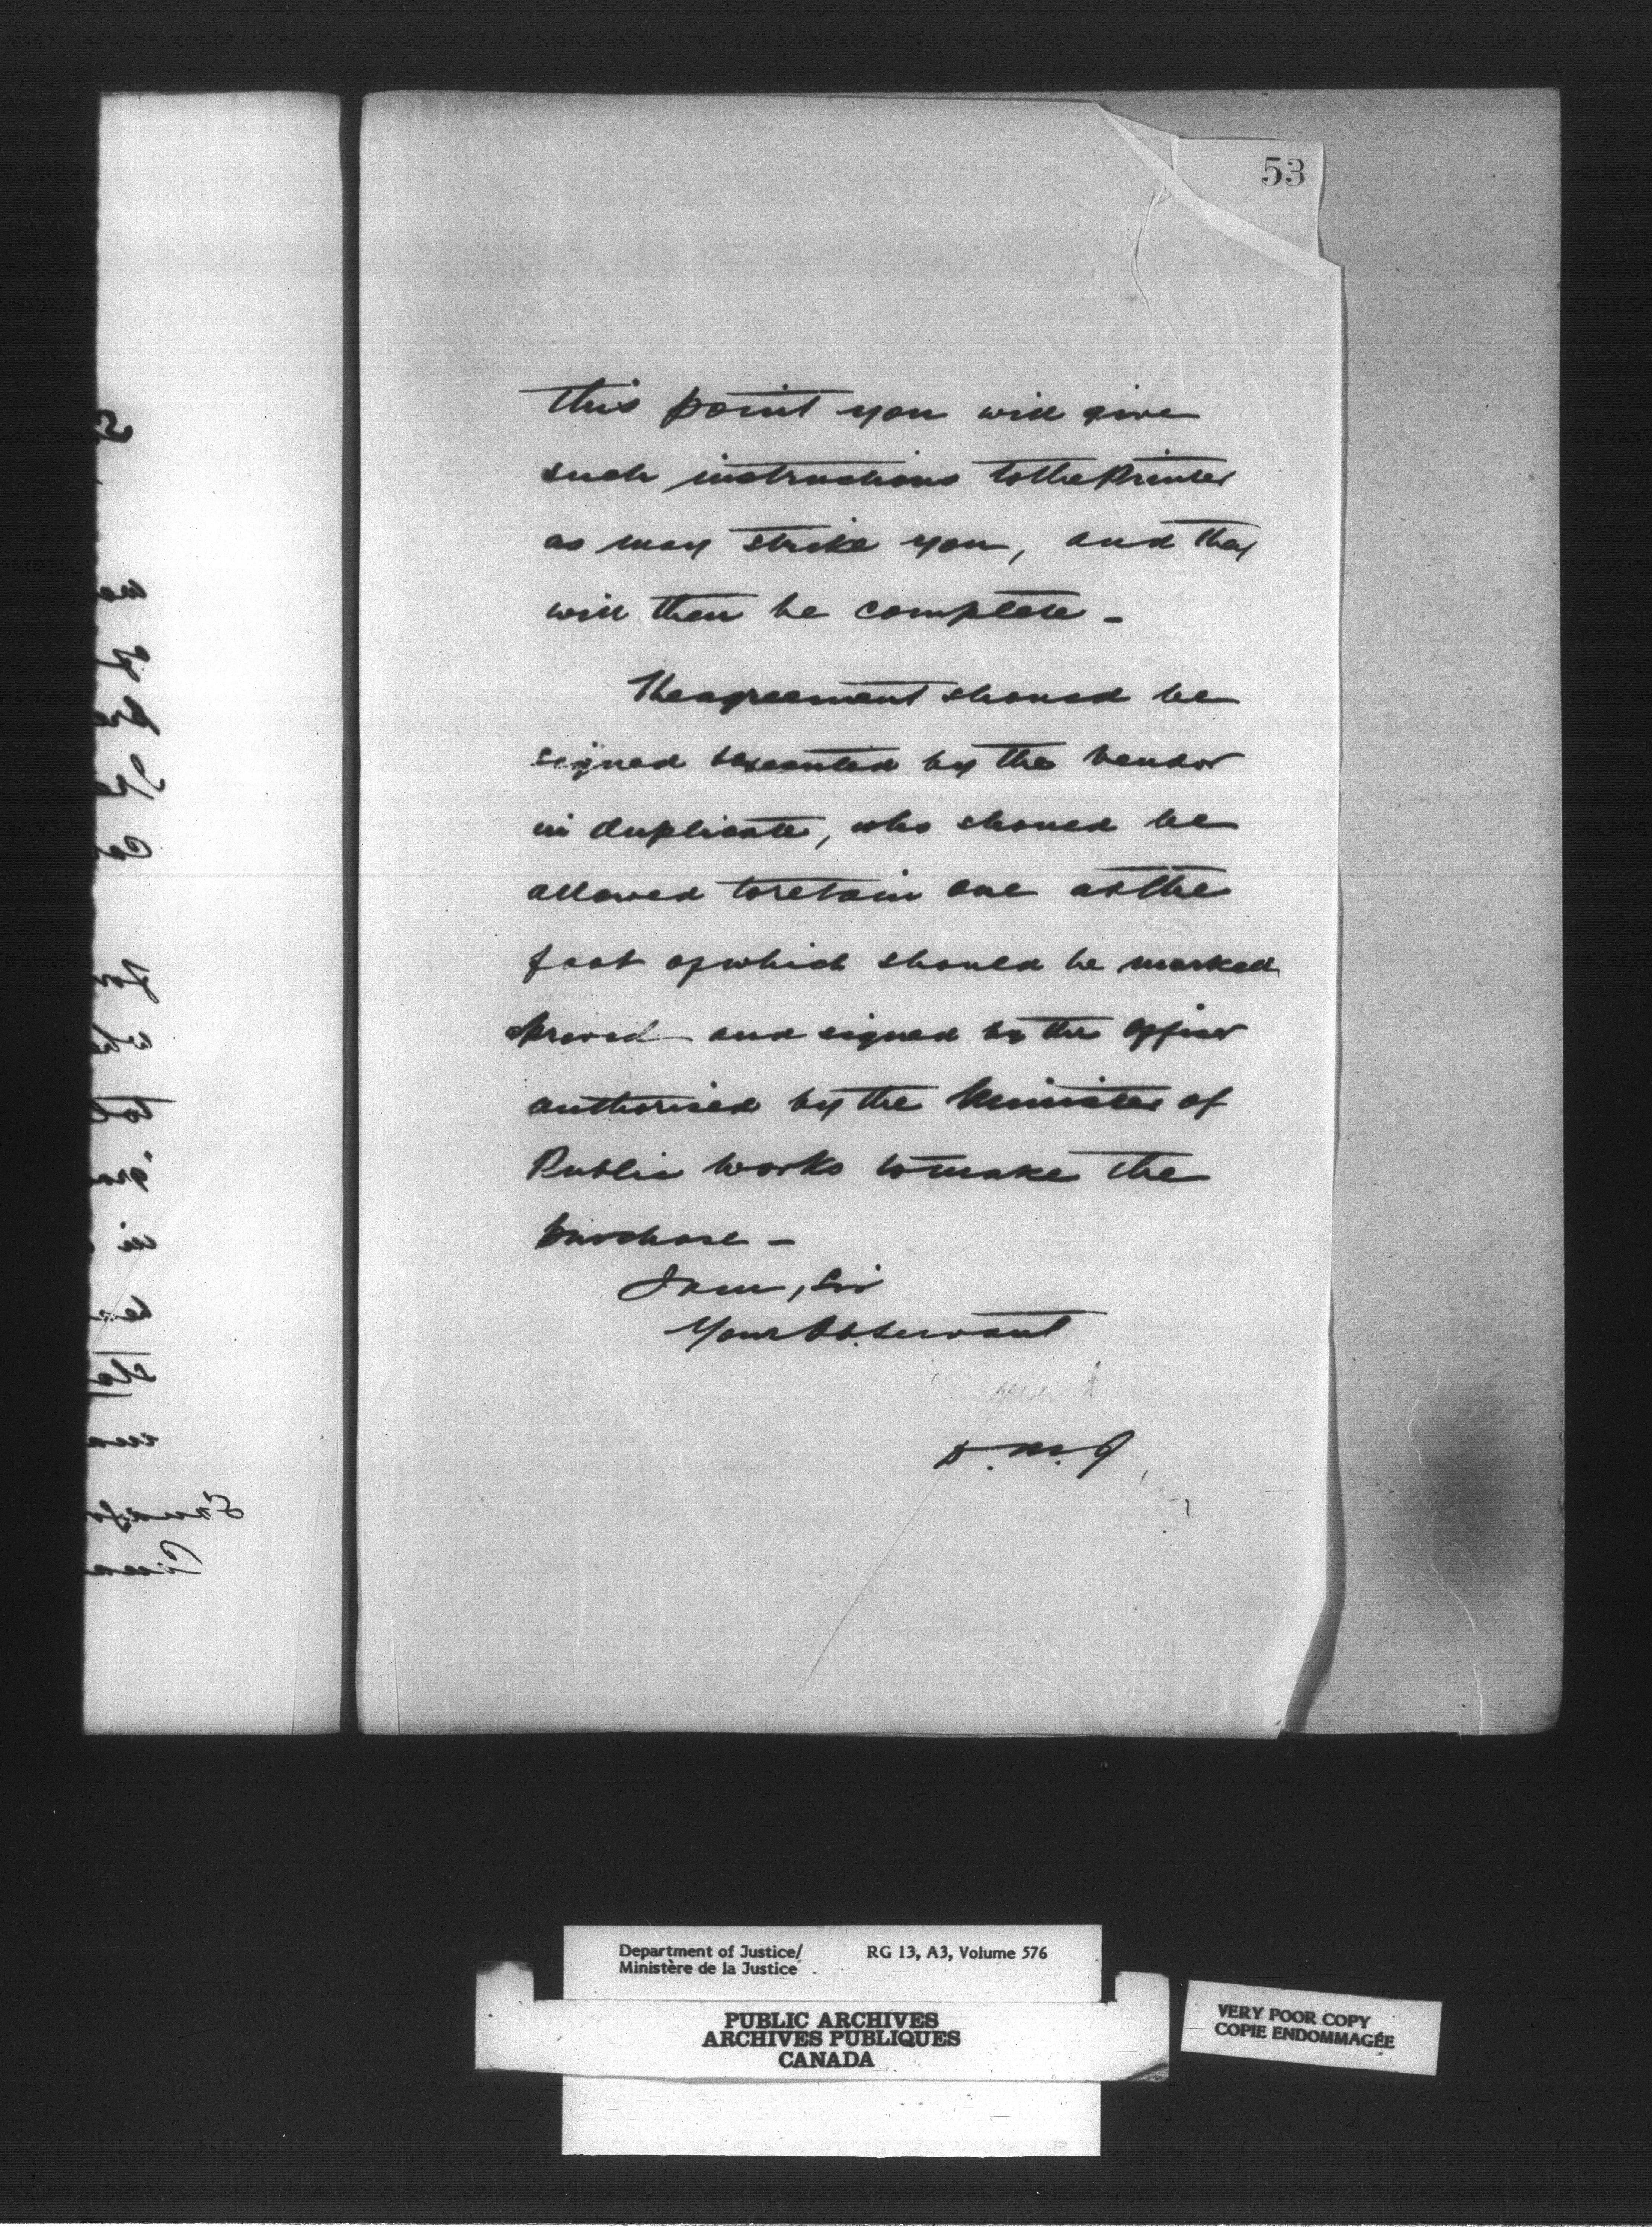 53
this point you will give
such instructions to the Printer
as may strike you, and they
will then be complete -
The agreement should be
signed executed by the vendor
in duplicate, who should be
allowed to retain one at the
foot of which should be marked
and signed by the officer
authorised by the Minister of
Public Works to make the
purchase -
I am, Sir
Your Ob. Servant
D. M. J
Department of Justice/ RG 13, A3, Volume 576
Ministère de la Justice
PUBLIC ARCHIVES
ARCHIVES PUBLIQUES
CANADA
VERY POOR COPY
COPIE ENDOMMAGÉE